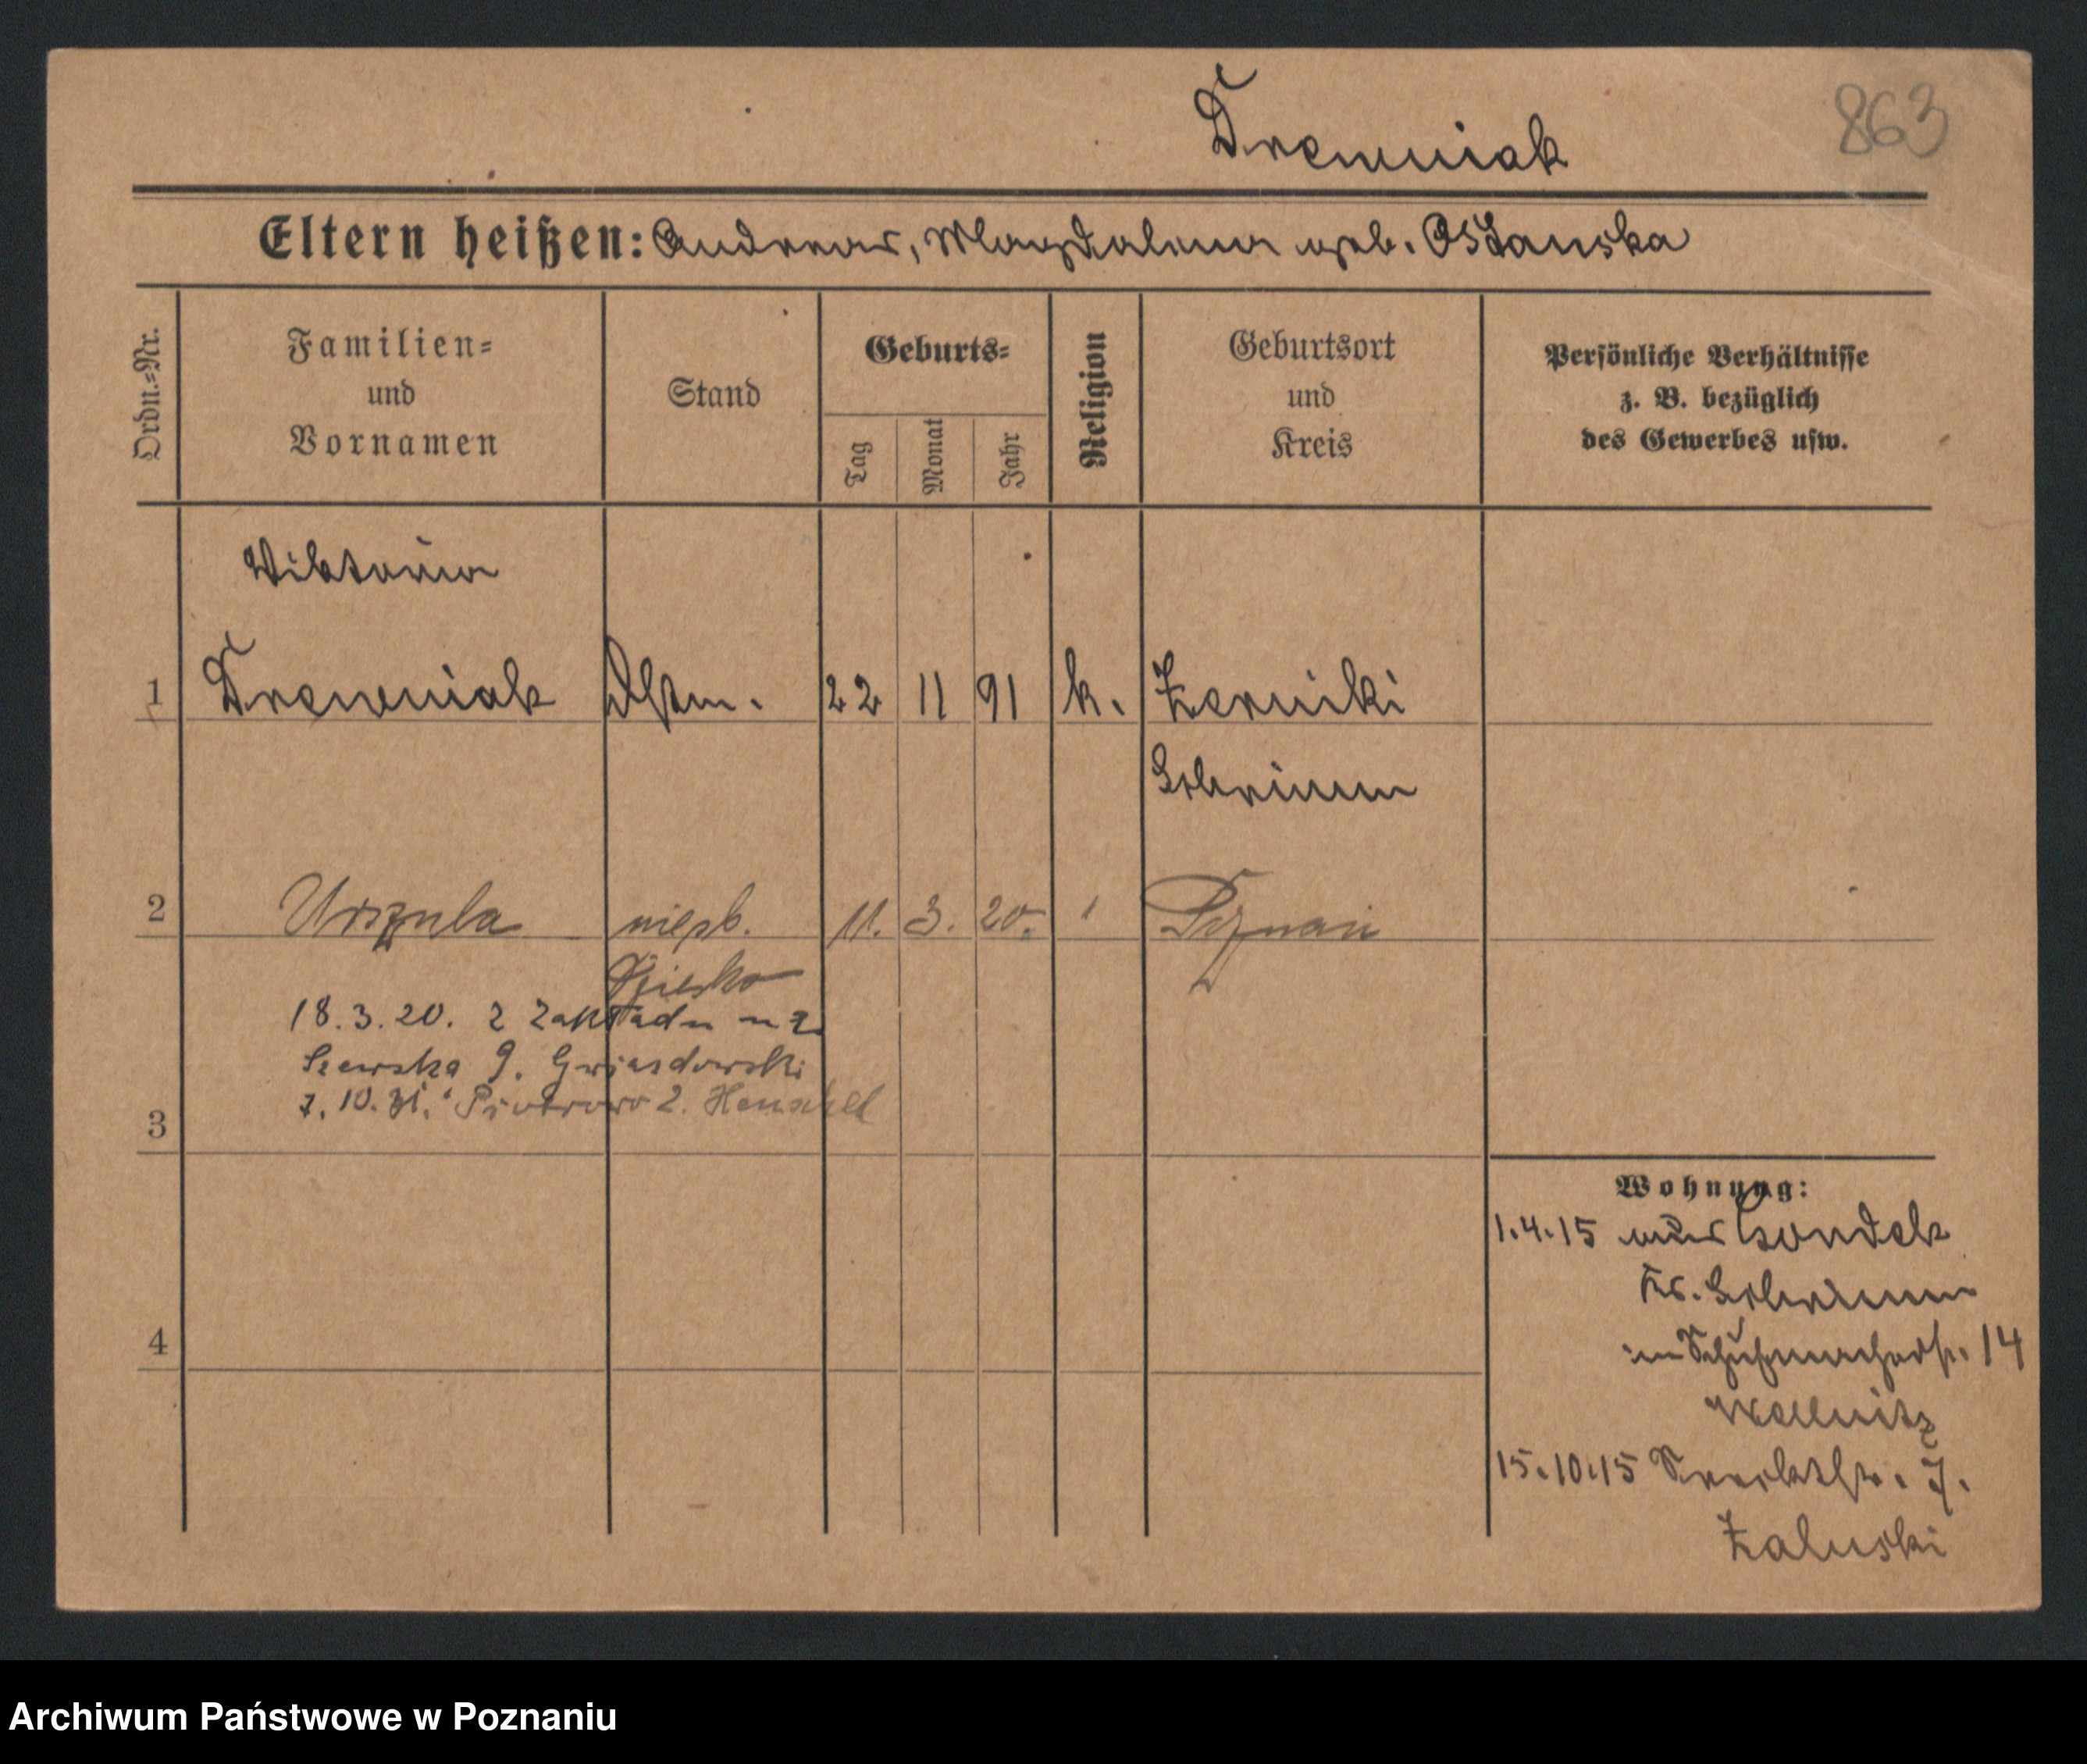 Drewniak
863
Eltern heißen: Andreas, Magdalena geb. Ostanska
Ordn.=Nr.
Familien=
und
Vornamen
Stand
Geburts=
Tag
Monat
Jahr
Religion
Geburtsort
und
Kreis
Persönliche Verhältnisse
z. B. bezüglich
des Gewerbes usw.
Viktoria
1 Drewniak Dstm. 22 11 91 k. Zerniki
Schrimm
2 Urszula nieśl. 11. 3. 20. Poznań
Dziecko
18.3.20. z Zakładu
Szewska 9. Gwiasdowski
7.10.31. Piotrowo 2. Henschel
3
Wohnung:
1.4.15 aus Gondek
Kr. Schrimm
in Schuhmacherstr. 14
Wellnitz
15.10.15 7.
Zaluski
4
Archiwum Państwowe w Poznaniu